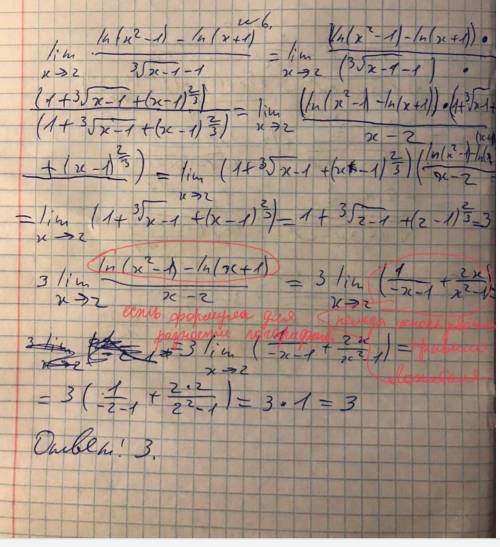 №6.
lim x→2 (ln(x²-1) - ln(x+1)) / (³√(x-1) - 1) = lim x→2 ((ln(x²-1) - ln(x+1)) • / (³√(x-1) - 1) •
(1+³√(x-1) + (x-1)^(2/3)) / (1+³√(x-1) + (x-1)^(2/3)) = lim x→2 ((ln(x²-1) - ln(x+1)) • (1+³√(x-1) + / x-2
+ (x-1)^(2/3)) = lim x→2 (1+³√(x-1) + (x-1)^(2/3)) (ln(x²-1) - ln(x / x-2 =
= lim x→2 (1+³√(x-1) + (x-1)^(2/3)) = 1+³√(2-1) + (2-1)^(2/3) = 3
3 lim x→2 (ln(x²-1) - ln(x+1)) / (x-2) = 3 lim x→2 (1/(-x-1) + 2x/(x²-1)
есть формула для
разности логарифмов
правила
Лопиталя
= 3 lim x→2 (1/(-x-1) + 2x/(x²-1)) =
= 3 (1/(-2-1) + 2•2/(2²-1)) = 3•1 = 3
Ответ: 3.